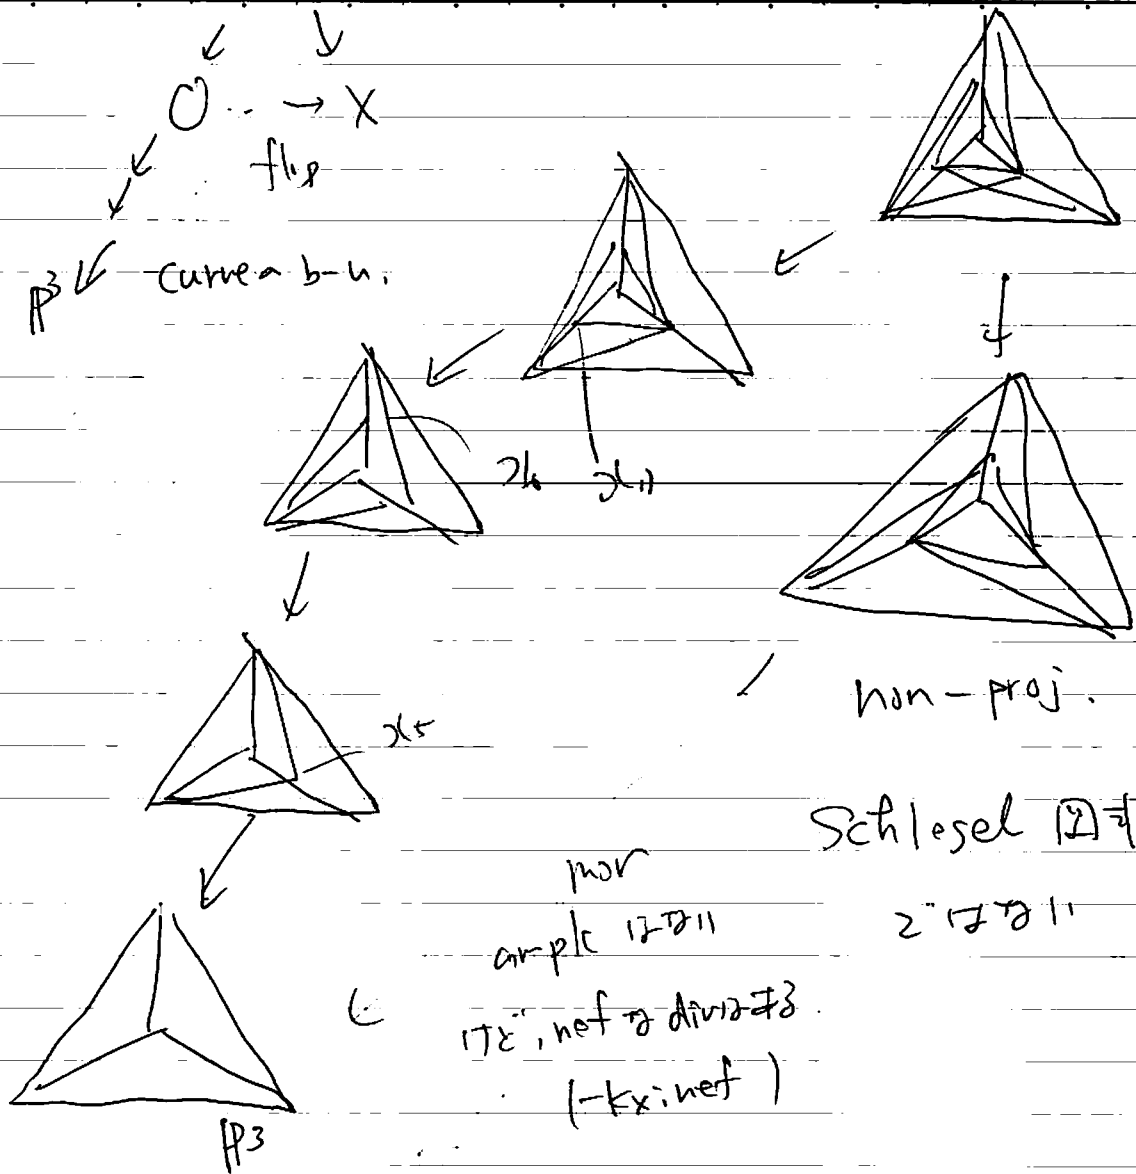 O ... → X
flip
P³ curve a b-u.
x₆ x₇
non-proj.
x₅
Schlegel 図式
ではない
mor
ample はない
けど, nef な div はある.
(-Kx: nef)
P³